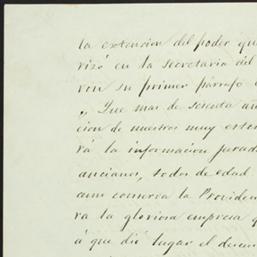 la extencion del poder qu
rizó en la secretaria del
ron su primer párrafo
„ Que mas de sesenta an
cion de nuestros muy este
rá la informacion jurad
ancianos, todos de edad
aun conserva la Providen
ra la gloriosa empresa q
á que dió lugar el decre